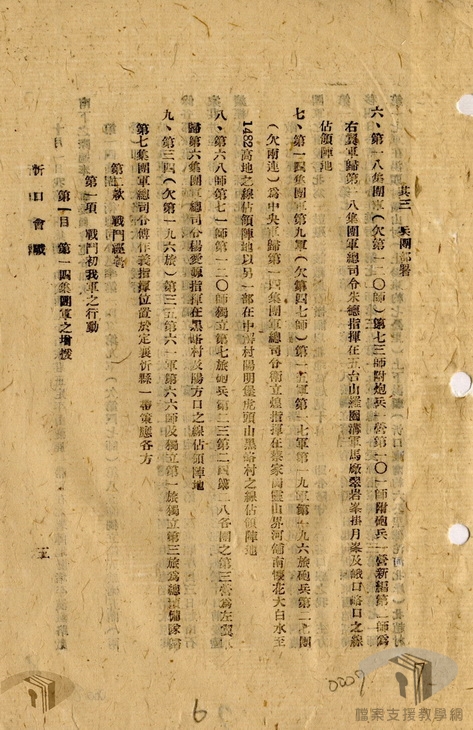 其三　兵團部署
六、第一八集團軍（欠第一二〇師）第七三師附炮兵一營第一〇一師附炮兵一營新編第二師爲
右翼軍歸第一八集團軍總司令朱德指揮在五台山羅圈溝軍馬廠翠岩峯掛月峯及峨口峪口之線
佔領陣地
七、第一四集團軍第九軍（欠第四七師）第一五軍第一七軍第一九軍第一九六旅炮兵第二七團
（欠兩連）爲中央軍歸第一四集團軍總司令衛立煌指揮在蔡家崗靈山界河舖南懷花大白水至
1482高地之線佔領陣地以另一部在中解村陽明堡虎頭山黑峪村之線佔領陣地
八、第六八師第七一師第一二〇師獨立第七旅炮兵第二三第二四第二八各團之第三營爲左翼軍
歸第六集團軍總司令楊愛源指揮在黑峪村及陽方口之線佔領陣地
九、第三四（欠第一九六旅）第三五第六一軍第六六師及獨立第一旅獨立第三旅爲總預備隊歸
第七集團軍總司令傅作義指揮位置於定襄忻縣一帶策應各方
第二款　戰鬥經過
第一項　戰鬥初我軍之行動
第一目　第一四集團軍之增援
忻口會戰
五
6
0007
檔案支援教學網